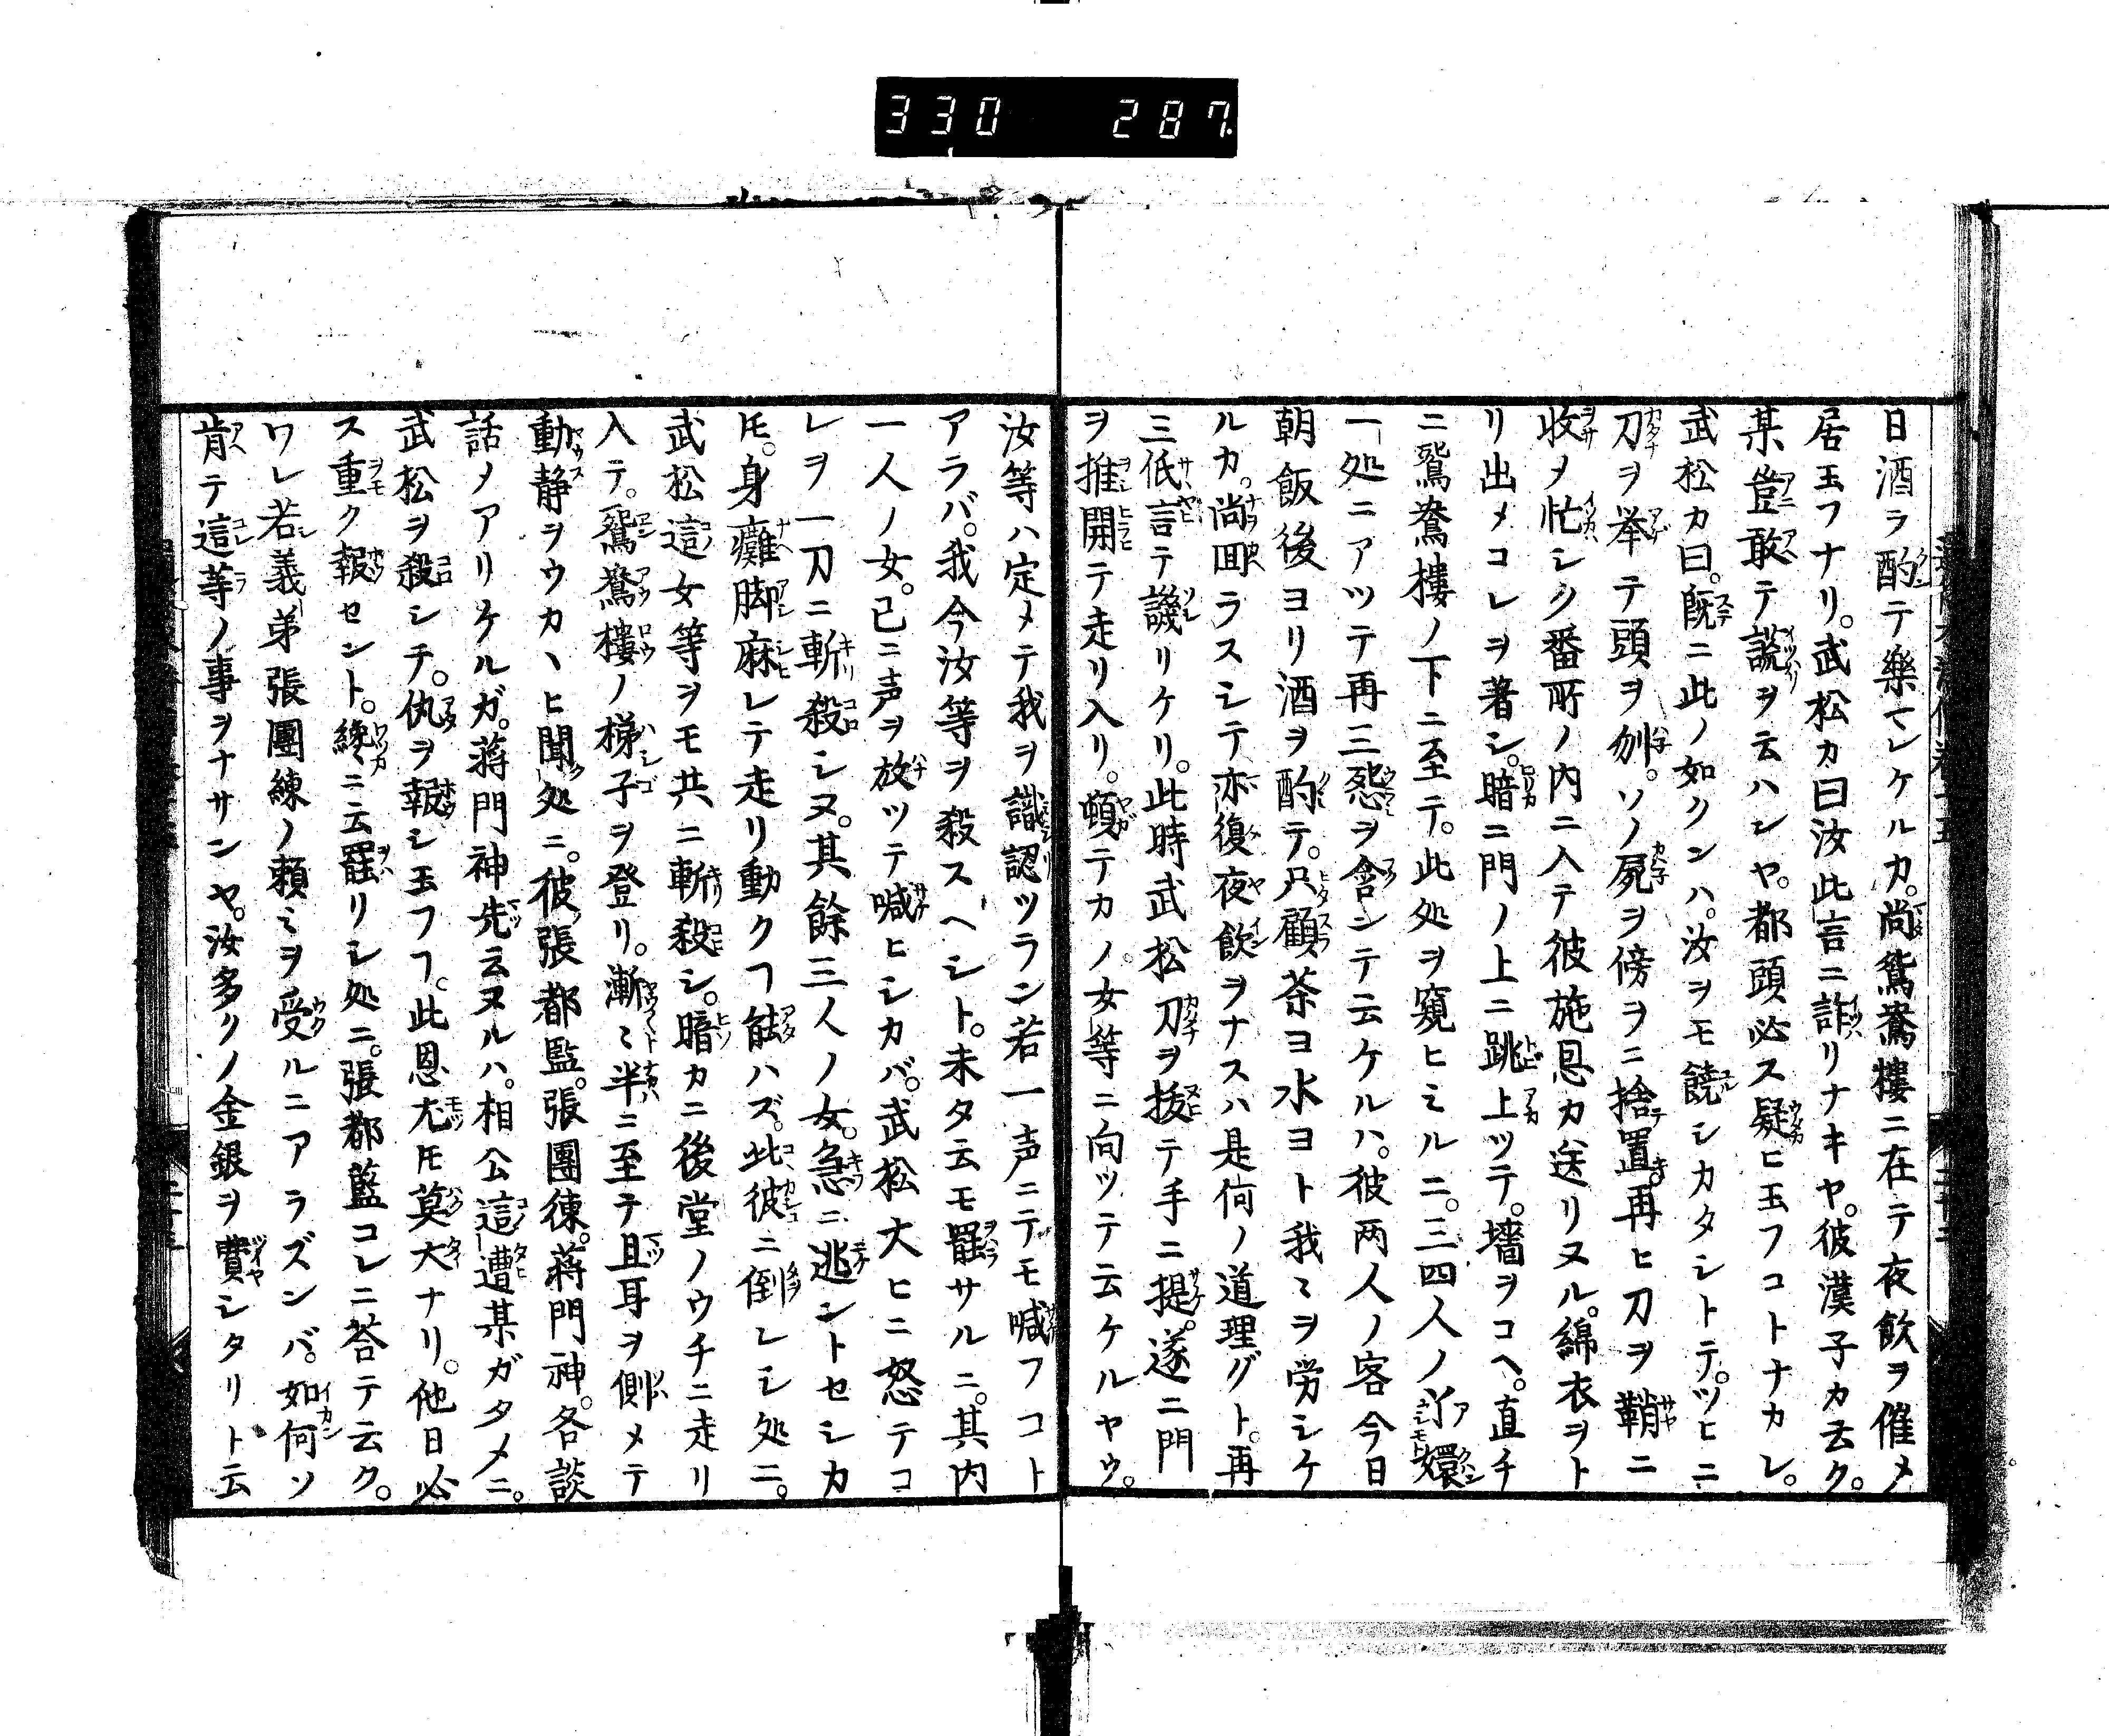 330 287
日酒ヲ酌テ樂マレケルカ。尚鴛鴦樓ニ在テ夜飲ヲ催メ
居玉フナリ。武松カ曰汝此言ニ詐リナキヤ。彼漢子カ云ク。
某豈敢テ謊ヲ云ハンヤ。都頭必ス疑ヒ玉フコトナカレ。
武松カ曰。既ニ此ノ如クンハ。汝ヲモ饒シカタシトテ。ツヒニ
刀ヲ挙テ頭ヲ刎。ソノ屍ヲ傍ヲニ捨置。再ヒ刀ヲ鞘ニ
收メ忙シク番所ノ内ニ入テ彼施恩カ送リヌル。綿衣ヲト
リ出メコレヲ著シ。暗ニ門ノ上ニ跳上ツテ。墻ヲコヘ。直チ
ニ鴛鴦樓ノ下ニ至テ。此処ヲ窺ヒミルニ。三四人ノ丫嬛
一処ニアツテ再三怨ヲ含ンテ云ケルハ。彼両人ノ客今日
朝飯後ヨリ酒ヲ酌テ。只顧茶ヨ水ヨト我ミヲ労シケ
ルカ。尚囬ラスシテ亦復夜飲ヲナスハ是何ノ道理グト。再
三低言テ譏リケリ。此時武松刀ヲ抜テ手ニ提。遂ニ門
ヲ推開テ走リ入リ。頓テカノ女等ニ向ツテ云ケルヤウ。
汝等ハ定メテ我ヲ識認ツラン若一声ニテモ喊フコト
アラバ。我今汝等ヲ殺スヘシト。未タ云モ罷サルニ。其内
一人ノ女。已ニ声ヲ放ツテ喊ヒシカバ。武松大ヒニ怒テコ
レヲ一刀ニ斬殺シヌ。其餘三人ノ女。急ニ逃ントセシカ
𪜈。身癱脚麻レテ走リ動クヿ能ハズ。此彼ニ倒レシ処ニ。
武松這女等ヲモ共ニ斬殺シ。暗カニ後堂ノウチニ走リ
入テ。鴛鴦樓ノ梯子ヲ登リ。漸ミ半ニ至テ且耳ヲ側メテ
動静ヲウカヽヒ聞処ニ。彼張都監。張團練。蒋門神。各談
話ノアリケルガ。蒋門神先云ヌルハ。相公這遭某ガタメニ。
武松ヲ殺シテ。仇ヲ報シ玉フヿ。此恩尤𪜈莫大ナリ。他日必
ス重ク報セント。纔ニ云罷リシ処ニ。張都監コレニ荅テ云ク。
ワレ若義弟張團練ノ頼ミヲ受ルニアラズンバ。如何ソ
肯テ這等ノ事ヲナサンヤ。汝多リノ金銀ヲ費シタリト云